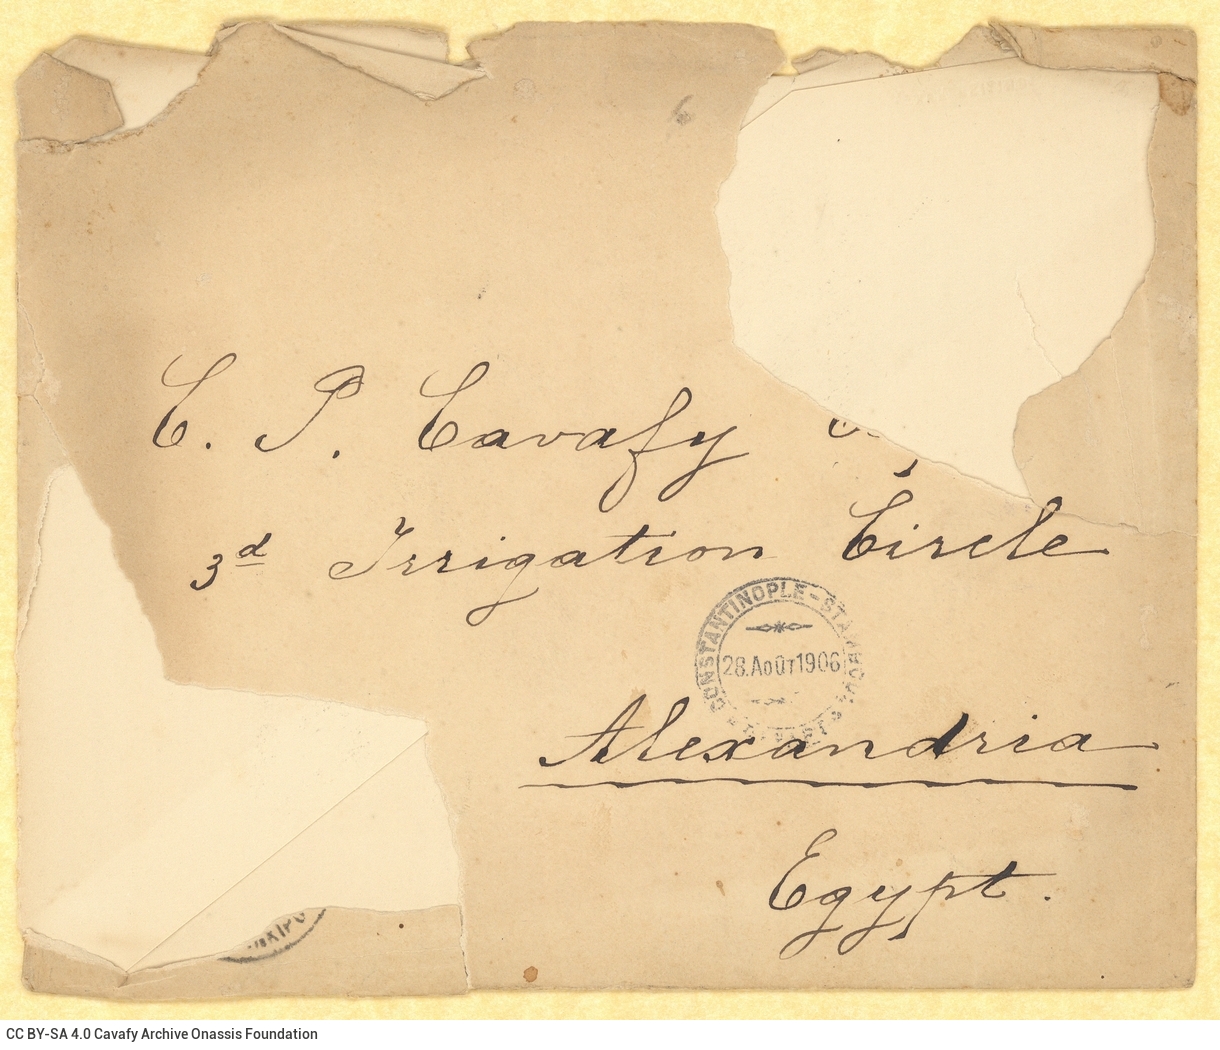 C. P. Cavafy
3d Irrigation Circle
CONSTANTINOPLE-STAMBOUL
28.AOÛT1906
Alexandria
Egypt.
CC BY-SA 4.0 Cavafy Archive Onassis Foundation